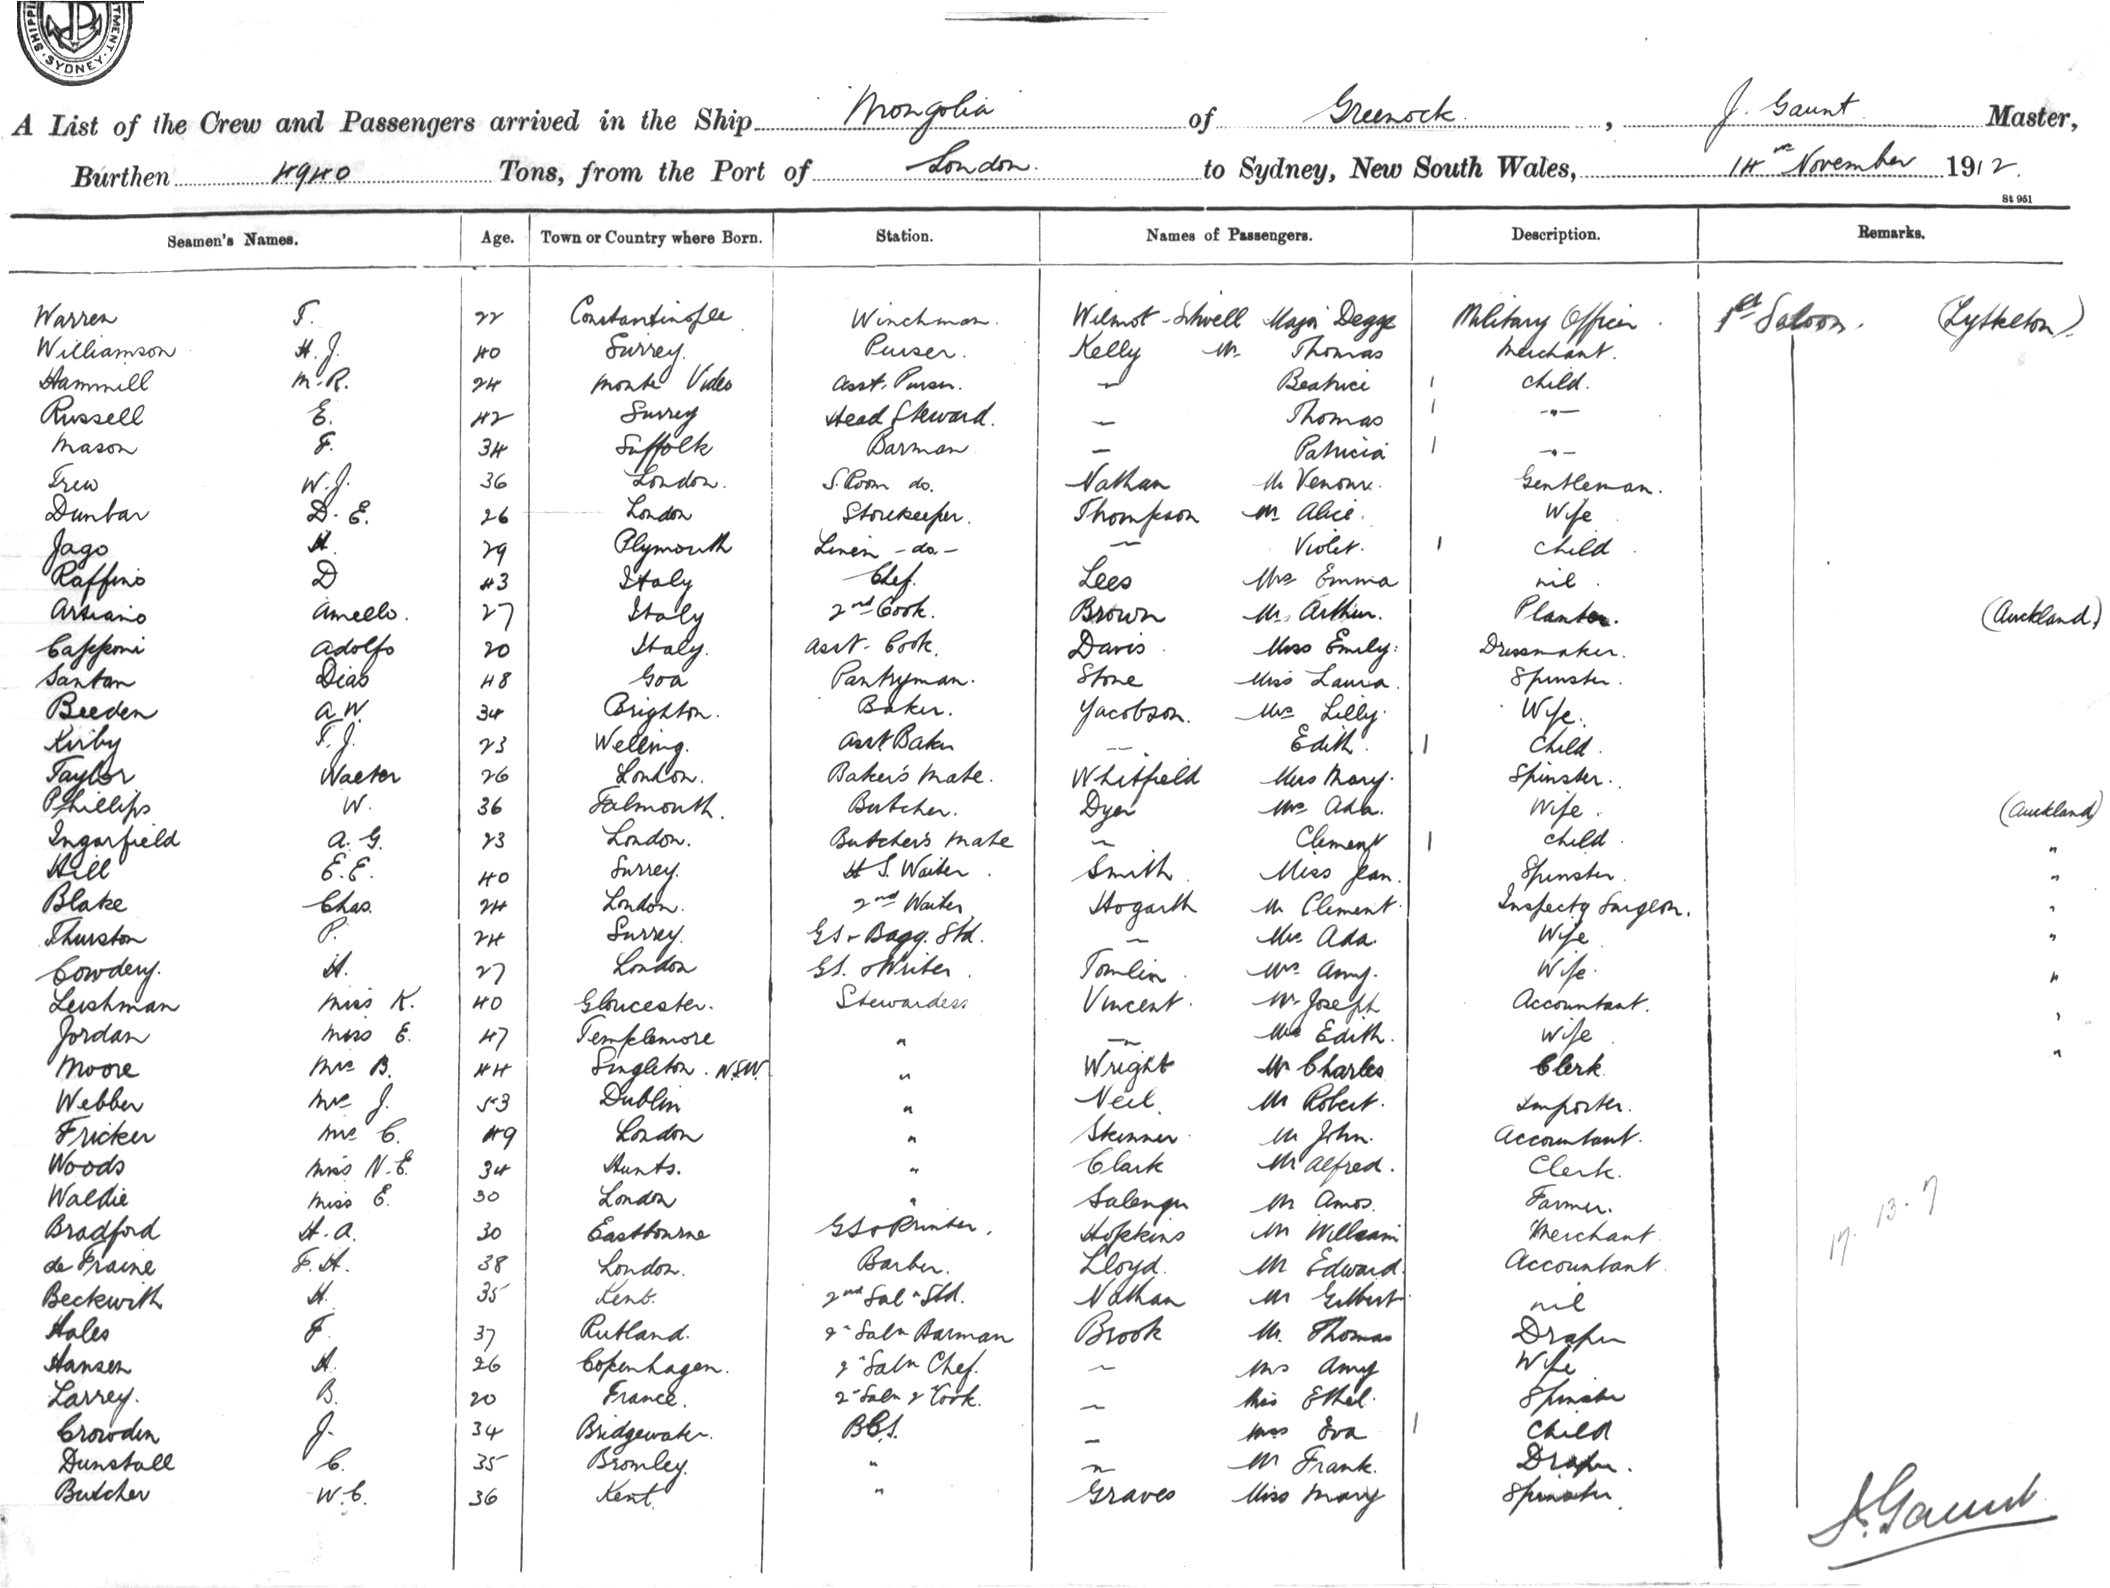 SHIPPI TMENT. SYDNEY.
A List of the Crew and Passengers arrived in the Ship Mongolia of Greenock, J. Gaunt Master,
Burthen 4940 Tons, from the Port of London. to Sydney, New South Wales, 14th November 1912.
St 951
Seamen's Names. Age. Town or Country where Born. Station. Names of Passengers. Description. Remarks.
Warren T. 22 Constantinople Winchman. Wilmot-Sitwell Major Degge Military Officer. 1st Saloon. (Lyttelton)
Williamson H.J. 40 Surrey. Purser. Kelly Mr Thomas Merchant.
Hammill M.R. 24 Monte Video Asst. Purser. " Beatrice 1 Child.
Russell E. 42 Surrey Head Steward. " Thomas 1 -"-
Mason F. 34 Suffolk Barman " Patricia 1 -"-
Trew W.J. 36 London. S. Room do. Nathan Mr Gentleman.
Dunbar D.E. 26 London Storekeeper. Thompson Alice. Wife
Jago H. 29 Plymouth Linen -do- " Violet. 1 Child
Raffino D 43 Italy Chef. Lees Mrs Emma nil.
27 Italy 2nd Cook. Brown Mr. Arthur. Planter. (Auckland)
Capponi Adolfo 20 Italy. Asst. Cook. Davis Miss Emily. Dressmaker.
Santan Dias 48 Goa Pantryman. Stone Miss Laura. Spinster.
Beeden A.W. 34 Brighton. Baker. Yacobson. Mrs Lilly. Wife.
Kirby T.J. 23 Welling. Asst Baker " Edith. 1 Child.
Taylor Walter 26 London. Baker's Mate. Whitfield Miss Mary. Spinster.
Phillips W. 36 Falmouth. Butcher. Dyer Mrs Ada. Wife. (Auckland)
Ingarfield A.G. 23 London. Butcher's Mate " Clement 1 Child "
Hill E.E. 40 Surrey. H S. Waiter. Smith Miss Jean. Spinster. "
Blake Chas. 24 London. 2nd Waiter Hogarth Mr Clement. Inspectg Surgeon. "
Thurston P. 24 Surrey. GS & Bagg. Std. " Mrs Ada Wife "
Cowdery. H. 27 London GS. & Writer. Tomlin Mrs Amy. Wife. "
Leishman Miss K. 40 Gloucester. Stewardess Vincent. Mr Joseph Accountant. "
Jordan Miss E. 47 Templemore " " Mrs Edith. Wife "
Moore Mrs B. 44 Singleton. N.S.W. " Wright Mr Charles Clerk
Webber Mrs J. 53 Dublin " Neil. Mr Robert. Importer.
Fricker Mrs C. 49 London " Skinner Mr John. Accountant.
Woods Miss N.E. 34 Hunts. " Clark Mr Alfred. Clerk.
Waldie Miss E. 30 London " Mr Amos. Farmer.
Bradford H.A. 30 Eastbourne GS & Printer. Hopkins Mr William Merchant
de Fraine F.H. 38 London. Barber. Lloyd. Mr Edward. Accountant
Beckwith H. 35 Kent. 2nd Saln Std. Nathan Mr Gilbert nil
Hales F. 37 Rutland. 2" Saln Barman Brook Mr. Thomas Draper
Hansen H. 26 Copenhagen. 2" Saln Chef. " Mrs Amy Wife
Larrey. B. 20 France. 2" Saln 2" Cook. " Miss Ethel. Spinster
Crowden J. 34 Bridgewater. B.C.S. " Miss Eva 1 Child
Dunstall C. 35 Bromley. " " Mr Frank. Draper.
Butcher W.C. 36 Kent. " Graves Miss Mary Spinster.
17. 13. 7
J. Gaunt